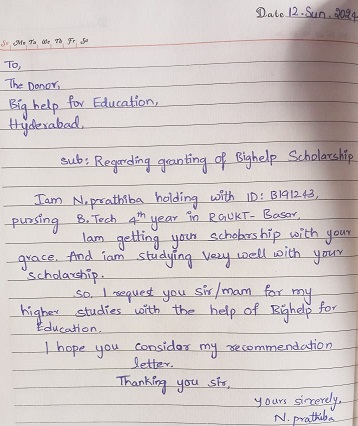 Date 12.Sun.2024
Sr Mo Tu We Th Fr Sa
To,
The Donor,
Big help for Education,
Hyderabad.
Sub: Regarding granting of Bighelp Scholarship
Iam N.prathiba holding with ID: B191243,
pursing B.Tech 4th year in RGUKT- Basar,
Iam getting your scholarship with your
grace. And iam studying very well with your
scholarship.
So, I request you sir/mam for my
higher studies with the help of Bighelp for
Education.
I hope you consider my recommendation
letter.
Thanking you sir,
yours sincerely,
N.prathiba